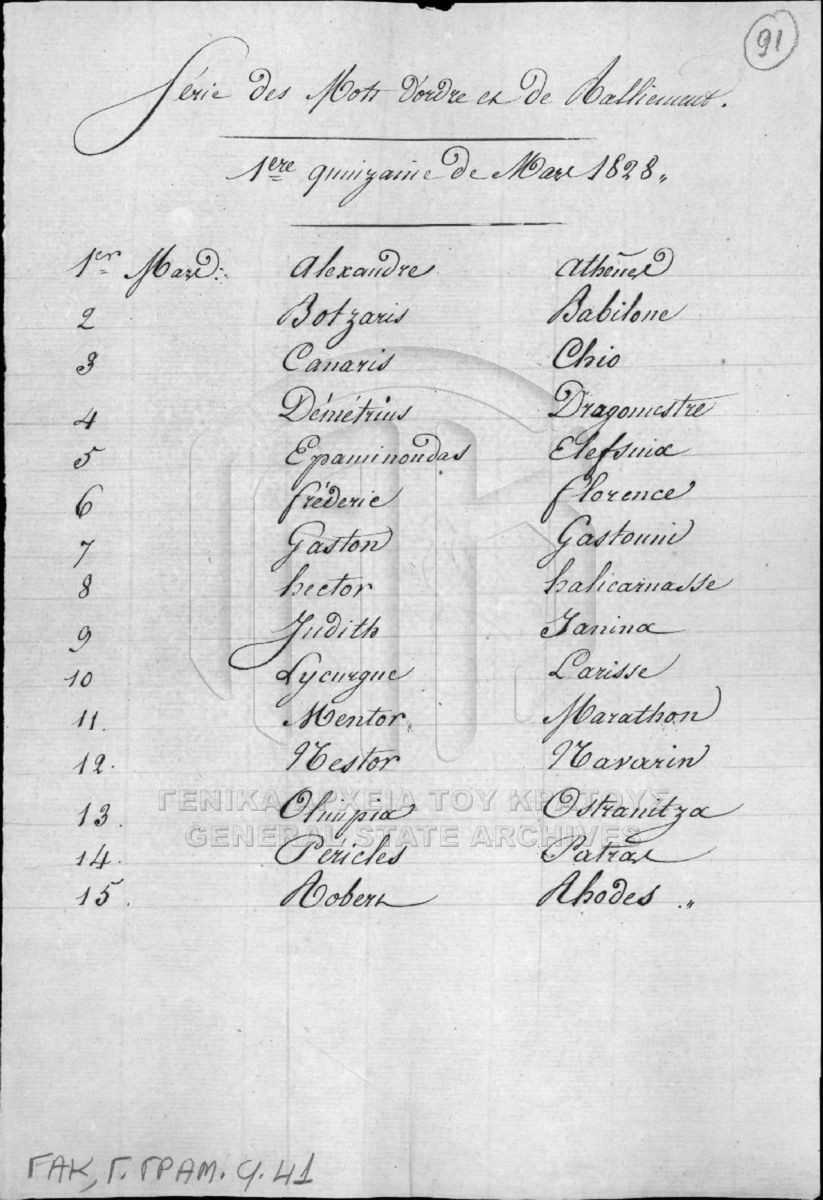 91
Série des Mots d'ordre et de Ralliement.
1ere quinzaine de Mars 1828 „
1er Mars: Alexandre Athènes
2 Botzaris Babilone
3 Canaris Chio
4 Démétrius Dragomestre
5 Epaminondas Elefsina
6 fréderic florence
7 Gaston Gastouni
8 hector halicarnasse
9 Judith Janina
10 Lycurgue Larisse
11. Mentor Marathon
12. Nestor Navarin
ΓΕΝΙΚΑ ΑΡΧΕΙΑ ΤΟΥ ΚΡΑΤΟΥΣ
13. Olimpia Ostranitza
GENERAL STATE ARCHIVES
14. Péricles Patras
15. Robert Rhodes „
ΓΑΚ, Γ. ΓΡΑΜ. φ. 41